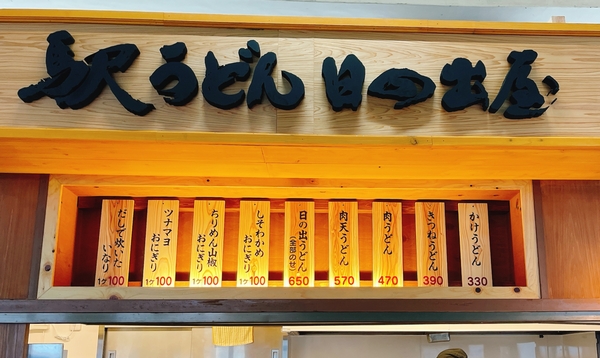 駅うどん 日の出屋
かけうどん
330
きつねうどん
390
肉うどん
470
肉天うどん
570
日の出うどん
(全部のせ)
650
しそわかめ
おにぎり
1ヶ100
ちりめん山椒
おにぎり
1ヶ100
ツナマヨ
おにぎり
1ヶ100
だしで炊いた
いなり
1ヶ100